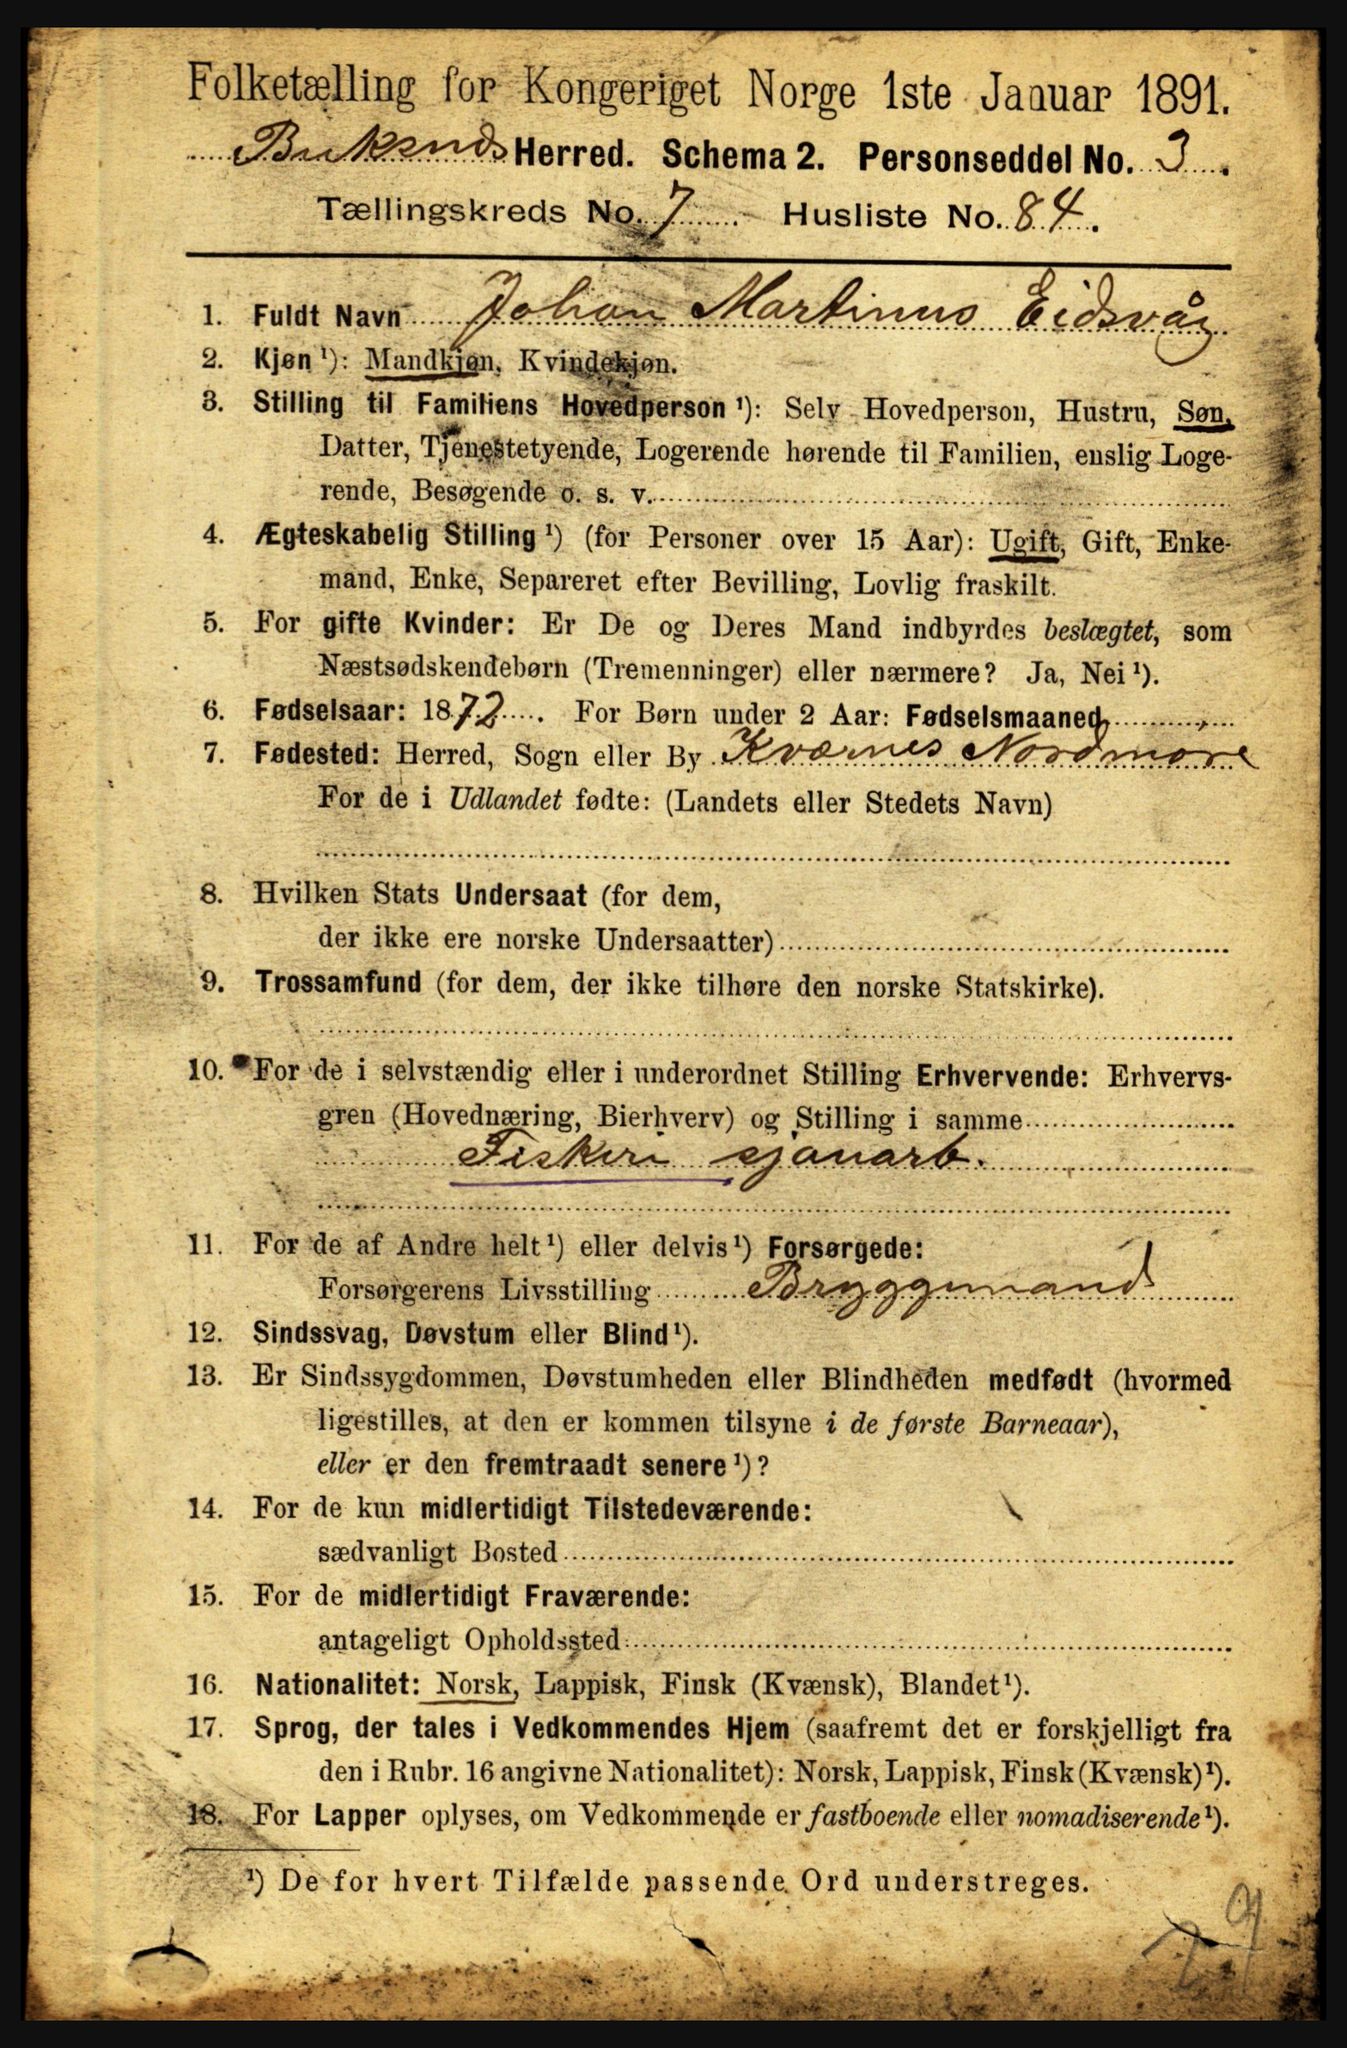 Folketælling for Kongeriget Norge 1ste Januar 1891.
Buksnæs Herred. Schema 2. Personseddel No. 3.
Tællingskreds No. 7 Husliste No. 84.
1. Fuldt Navn Johan Martinus Eidsvåg
2. Kjøn ¹): Mandkjøn, Kvindekjøn.
3. Stilling til Familiens Hovedperson ¹): Selv Hovedperson, Hustru, Søn,
Datter, Tjenestetyende, Logerende hørende til Familien, enslig Loge-
rende, Besøgende o. s. v.
4. Ægteskabelig Stilling ¹) (for Personer over 15 Aar): Ugift, Gift, Enke-
mand, Enke, Separeret efter Bevilling, Lovlig fraskilt.
5. For gifte Kvinder: Er De og Deres Mand indbyrdes beslægtet, som
Næstsødskendebørn (Tremenninger) eller nærmere? Ja, Nei ¹).
6. Fødselsaar: 1872. For Børn under 2 Aar: Fødselsmaaned
7. Fødested: Herred, Sogn eller By Kværnes Nordmøre
For de i Udlandet fødte: (Landets eller Stedets Navn)
8. Hvilken Stats Undersaat (for dem,
der ikke ere norske Undersaatter)
9. Trossamfund (for dem, der ikke tilhøre den norske Statskirke).
10. For de i selvstændig eller i underordnet Stilling Erhvervende: Erhvervs-
gren (Hovednæring, Bierhverv) og Stilling i samme
Fiskeri sjauarb.
11. For de af Andre helt ¹) eller delvis ¹) Forsørgede:
Forsørgerens Livsstilling Bryggemand
12. Sindssvag, Døvstum eller Blind ¹).
13. Er Sindssygdommen, Døvstumheden eller Blindheden medfødt (hvormed
ligestilles, at den er kommen tilsyne i de første Barneaar),
eller er den fremtraadt senere ¹)?
14. For de kun midlertidigt Tilstedeværende:
sædvanligt Bosted
15. For de midlertidigt Fraværende:
antageligt Opholdssted
16. Nationalitet: Norsk, Lappisk, Finsk (Kvænsk), Blandet ¹).
17. Sprog, der tales i Vedkommendes Hjem (saafremt det er forskjelligt fra
den i Rubr. 16 angivne Nationalitet): Norsk, Lappisk, Finsk (Kvænsk) ¹).
18. For Lapper oplyses, om Vedkommende er fastboende eller nomadiserende ¹).
¹) De for hvert Tilfælde passende Ord understreges.